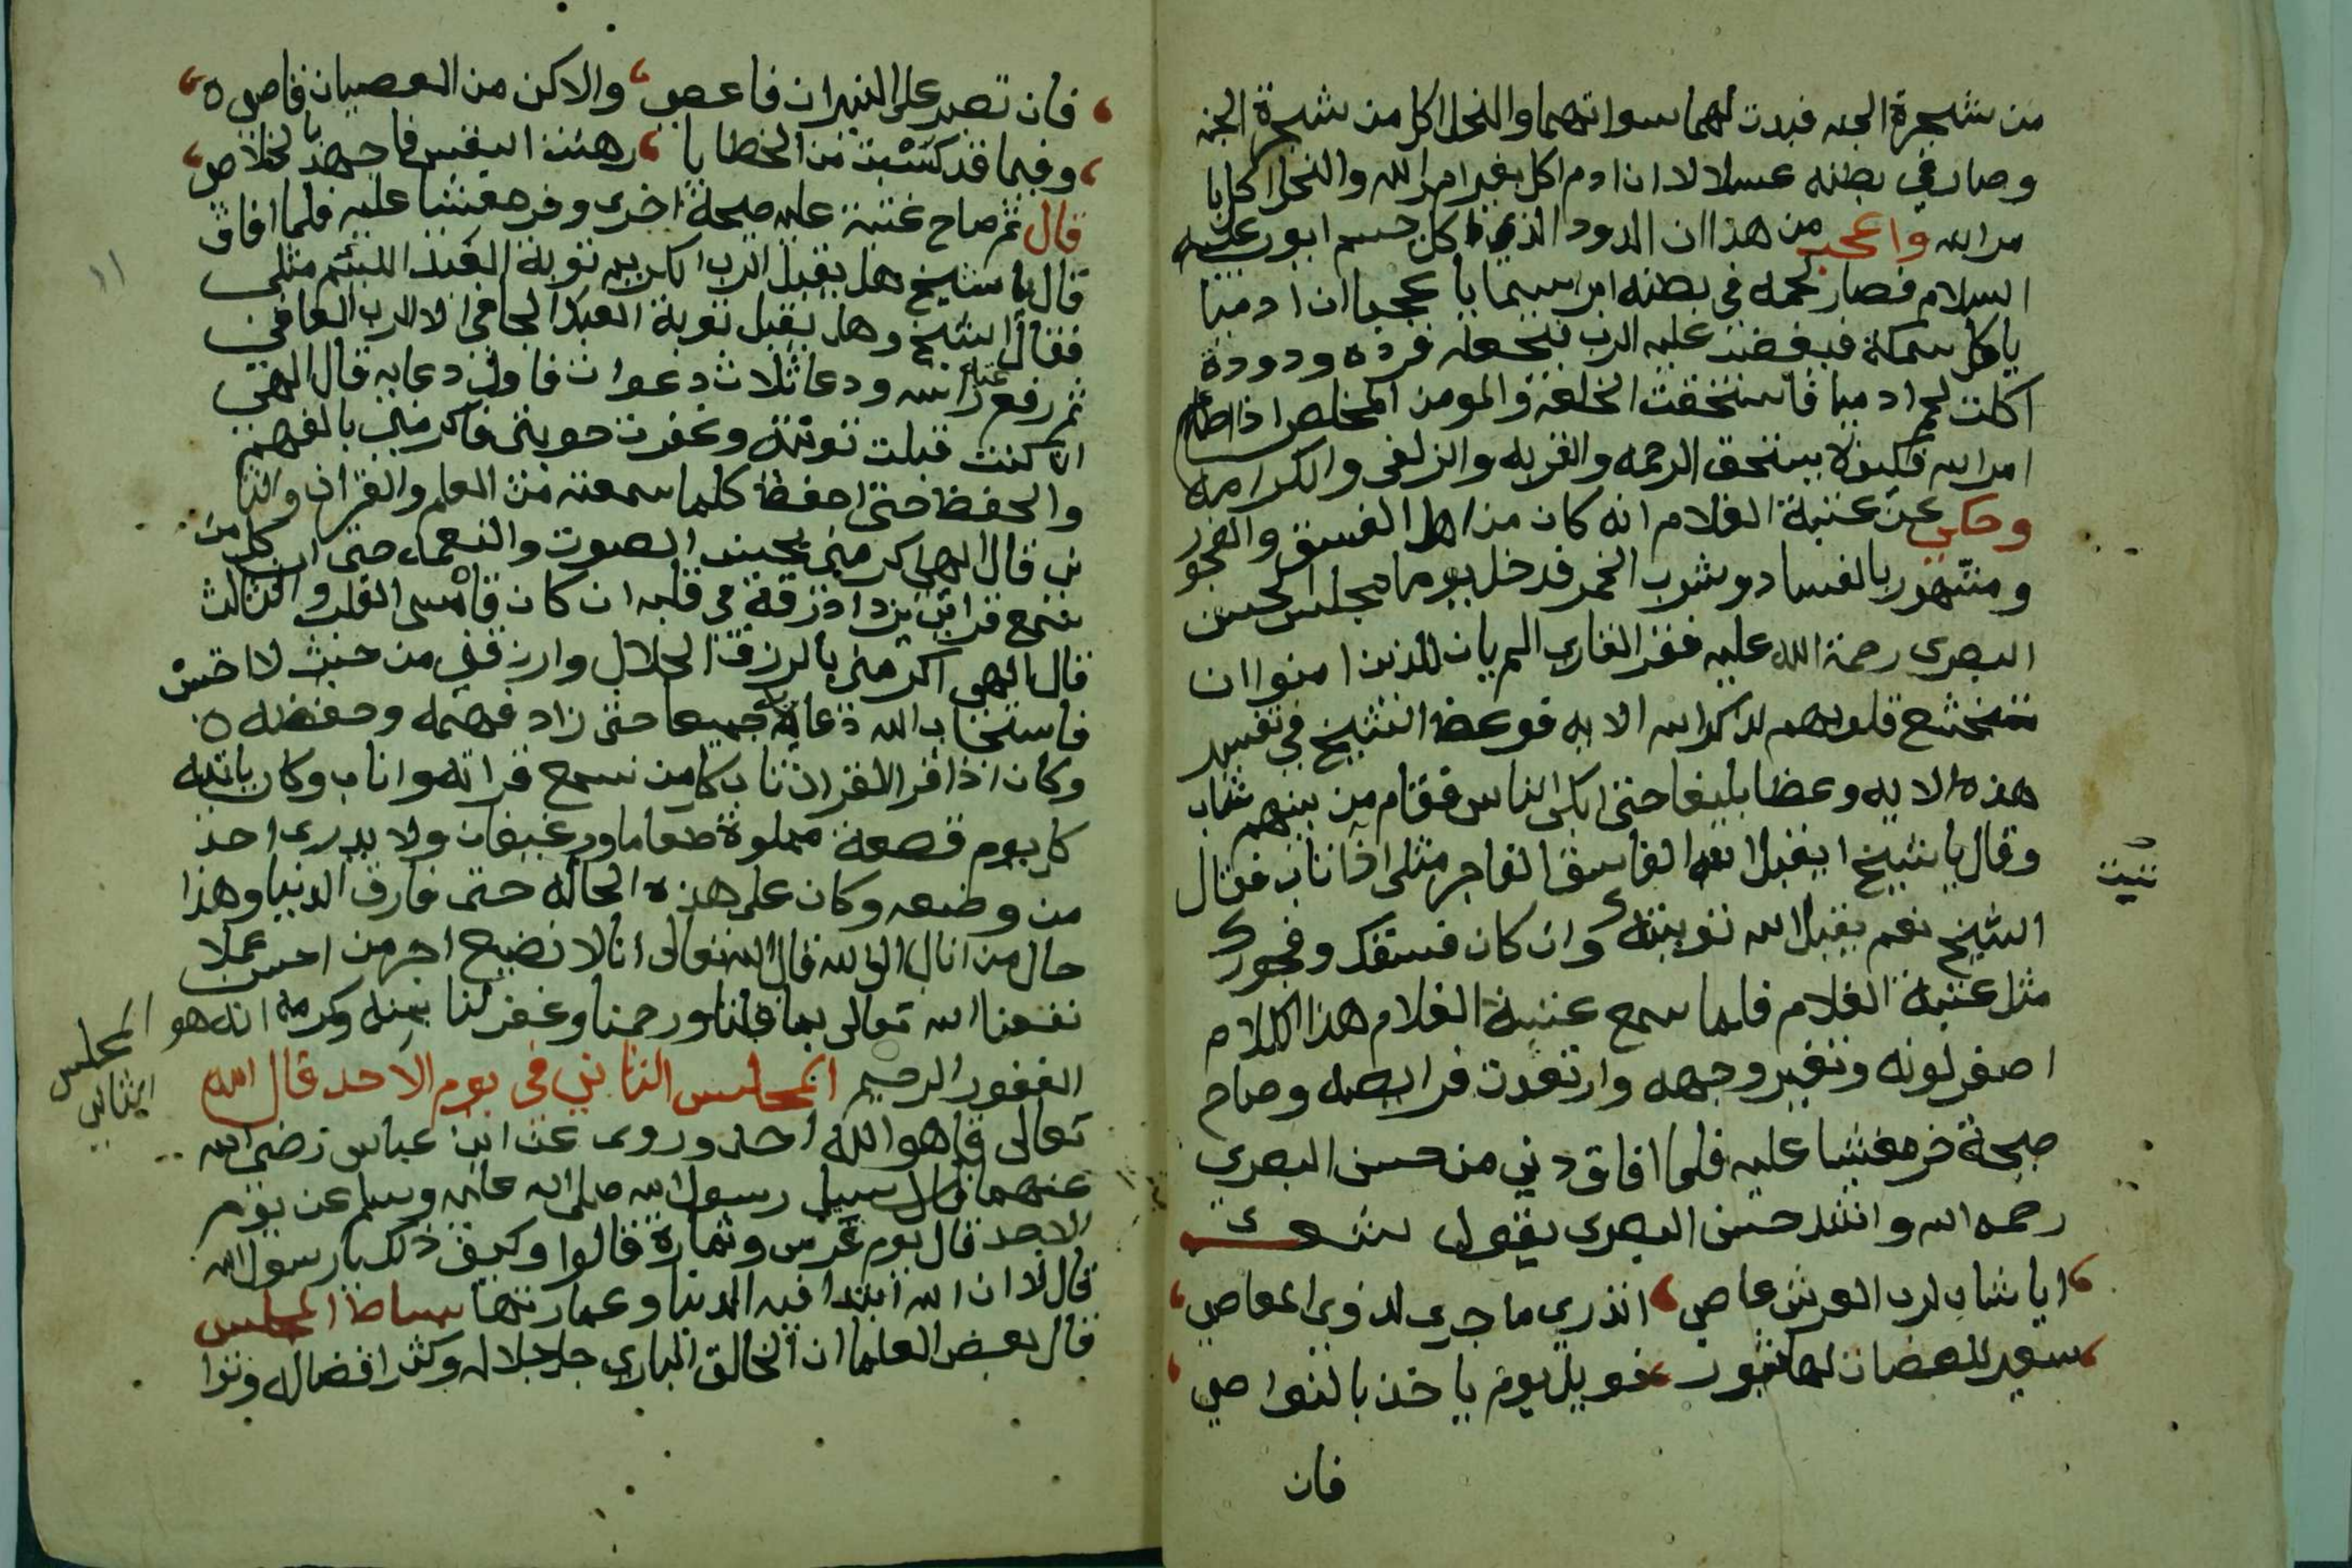 من شجرة الجنه فبدت لهما سواتهما والنحل اكل من شجرة الجنه
وصار في بطنه عسلا لان ادم اكل بغير امر الله والنحل اكل با
مر الله واعجب من هذا ان الدود الذي اكل جسم ايوب عليه
السلام فصار لحمه في بطنه ابراسيما يا عجبا ان ادميا
ياكل سمكة فيغضب عليه الرب فيجعله قرده ودودة
اكلت لحم ادميا فاستحقت الخلعة والمومن المخلص اذا اطاع
امر الله فكيف لا يستحق الرحمه والقربه والزلفى والكرامه
وحكي عن عتبة الغلام انه كان من اهل الفسق والفجور
ومشهور بالفساد وشرب الخمر فدخل يوما مجلس الحسن
البصرى رحمة الله عليه فقرا القارى الم يان للذين امنوا ان
تخشع قلوبهم لذكر الله الايه فوعظ الشيخ في تفسير
هذه الايه وعظا بليغا حتى ابكى الناس فقام من بينهم شاب
وقال يا شيخ ايقبل الله الفاسق الفاجر مثلى اذا تاب فقال
الشيخ نعم يقبل الله توبتك وان كان فسقك وفجورك
مثل عتبة الغلام فلما سمع عتبة الغلام هذا الكلام
اصفر لونه وتغير وجهه وارتعدت فرايصه وصاح
صيحة خر مغشيا عليه فلما افاق دني من حسن البصري
رحمه الله وانشد حسن البصرى يقول شعر
ايا شاب لرب العرش عاصي اتدري ما جرى لذوى المعاصي
سعير للعصات لها ثبور فويل يوم ياخذ بالنواصي
فان
فان تصبر على النيران فاعصي والا كن من العصيان قاصي
وفيما قد كسبت من الخطايا رهنت النفس فاجهد بالخلاص
قال ثم صاح عتبة عليه صيحة اخرى وخر مغشيا عليه فلما افاق
قال يا شيخ هل يقبل الرب الكريم توبة العبد اللئيم مثلى
فقال الشيخ وهل يقبل توبة العبد الجافي الا الرب العافي
ثم رفع عتبة راسه ودعا ثلاث دعوات فاول دعايه قال الهي
ان كنت قبلت توبتي وغفرت حوبتي فاكرمني بالفهم
والحفظ حتى احفظ كلما سمعته من العلم والقران والثا
ني قال الهي اكرمني بحسن الصوت والنعماء حتى ان كل من
سمع قراتي يزداد رقة في قلبه ان كان قاسى القلب والثالث
قال الهى اكرمني بالرزق الحلال وارزقني من حيث لا احتسب
فاستجاب الله دعايه جميعا حتى زاد فهمه وحفظه
وكان اذا قرا القران تاب كل من سمع قراته واناب وكان ياتيه
كل يوم قصعة مملوة طعاما ورغيفان ولا يدرى احد
من وضعه وكان على هذه الحاله حتى فارق الدنيا وهذا
حال من اناب الى الله قال الله تعالى انا لا نضيع اجر من احسن عملا
نفعنا الله تعالى بما قلنا ورحمنا وغفر لنا بمنه وكرمه انه هو
الغفور الرحيم المجلس الثاني في يوم الاحد قال الله
المجلس
الثاني
تعالى قل هو الله احد وروى عن ابن عباس رضى الله
عنهما قال سيل رسول الله صلى الله عليه وسلم عن يوم
الاحد قال يوم غرس وعمارة قالوا وكيف ذلك يا رسول الله
قال لان الله ابتدا فيه الدنيا وعمارتها بساط المجلس
قال بعض العلما ان الخالق البارى جل جلاله وكثر افضاله وتوا